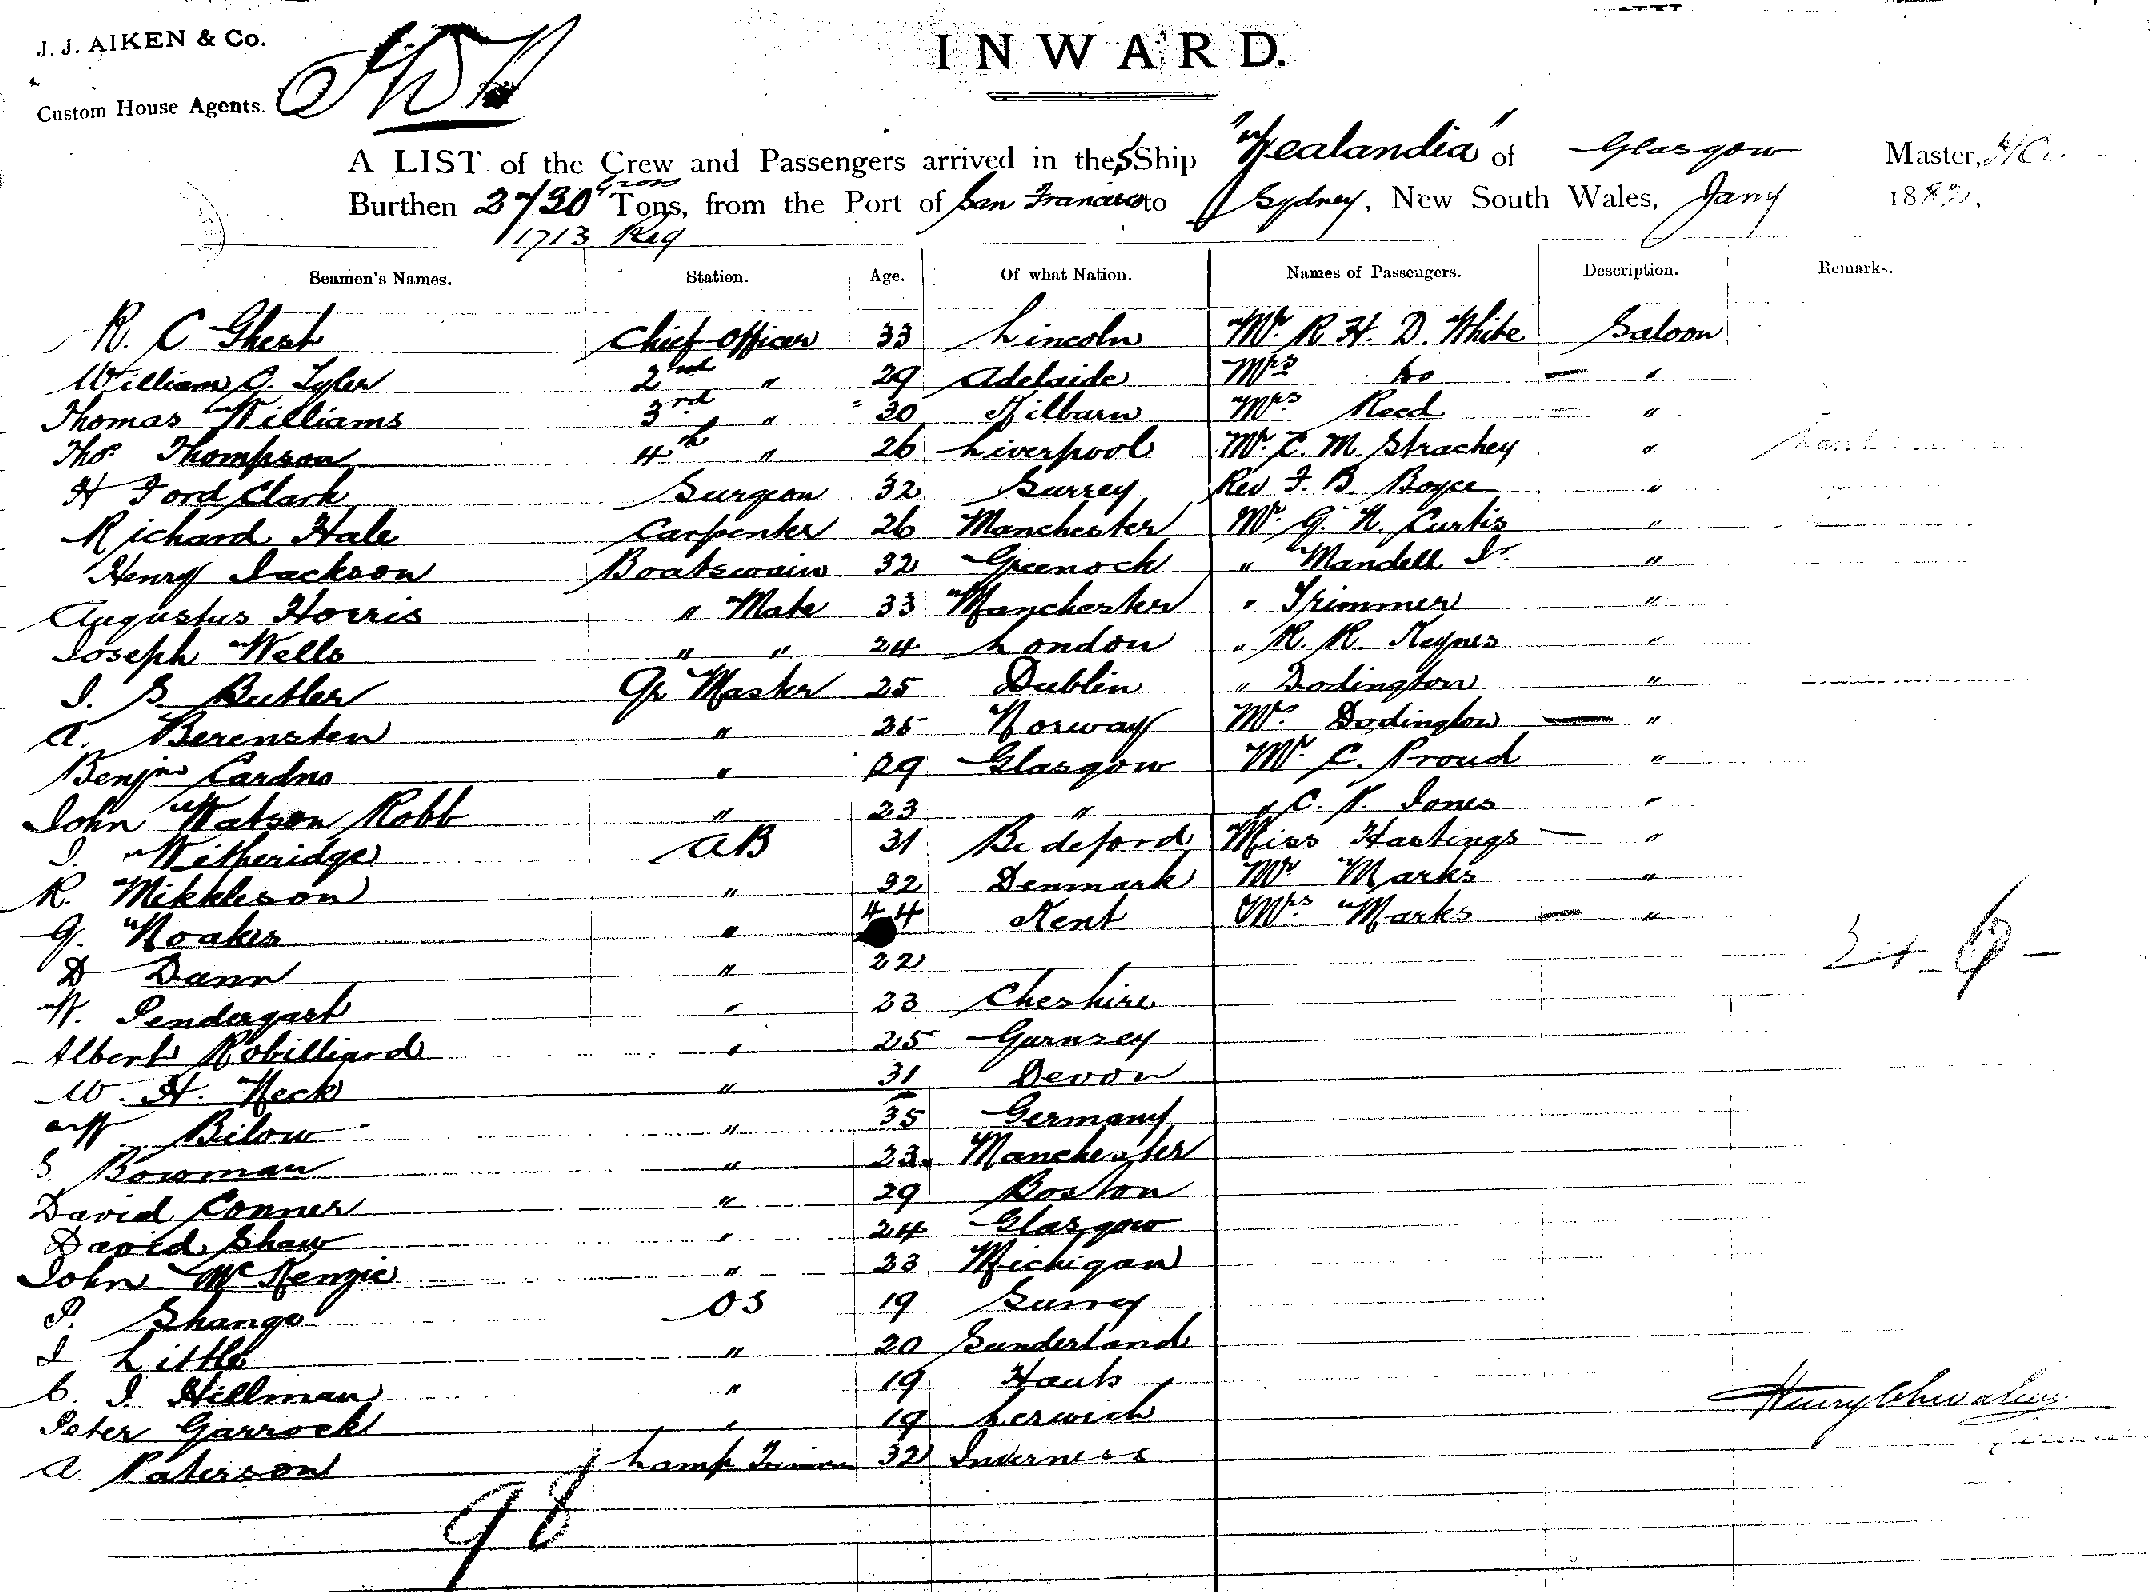 J. J. AIKEN & Co.
Custom House Agents.
INWARD.
A LIST of the Crew and Passengers arrived in the S Ship "Zealandia" of Glasgow Master,
Burthen 2730 Gross Tons, from the Port of San Francisco to Sydney, New South Wales, Jany 188
1713 Reg
Seamen's Names. Station. Age. Of what Nation. Names of Passengers. Description. Remarks.
R. C Ghest Chief Officer 33 Lincoln Mr. R H. D. White Saloon
William O. Tyler 2nd " 29 Adelaide Mrs Do — "
Thomas Williams 3rd " 30 Kilburn Mrs Reed "
Thos Thompson 4th " 26 Liverpool Mr. C. M. Strachey "
H Ford Clark Surgeon 32 Surrey Rev F. B. Boyce "
Richard Hale Carpenter 26 Manchester Mr. G. N. Curtis "
Henry Jackson Boatswain 32 Greenock " Mandell Jr "
Augustus Horris " Mate 33 Manchester " Trimmer "
Joseph Wells " " 24 London " R. R. Keynes "
J. S. Butler Qr Master 25 Dublin " Dodington "
A. Berensten " 35 Norway Mrs Dodington — "
Benjn Cardno " 29 Glasgow Mr. C. Proud "
John Watson Robb " 23 " " C. V. Jones "
J. Witheridge AB 31 Bideford Miss Hastings — "
R. Mikkleson " 32 Denmark Mr Marks "
G. Noakes " 44 Kent Mrs Marks — "
D Dann " 22
W. Pendergast " 23 Cheshire
Albert Robilliard " 25 Gurnsey
W. H. Heck " 31 Devon
Bilow " 35 Germany
S Bowman " 23 Manchester
David Conner " 29 Boston
David Shaw " 24 Glasgow
John McKenzie " 23 Michigan
P. Shango OS 19 Surrey
J Little " 20 Sunderland
C. J. Hillman " 19 Hants
Peter Garrock " 19 Lerwick
A Paterson Lamp Trimmer 32 Inverness
98